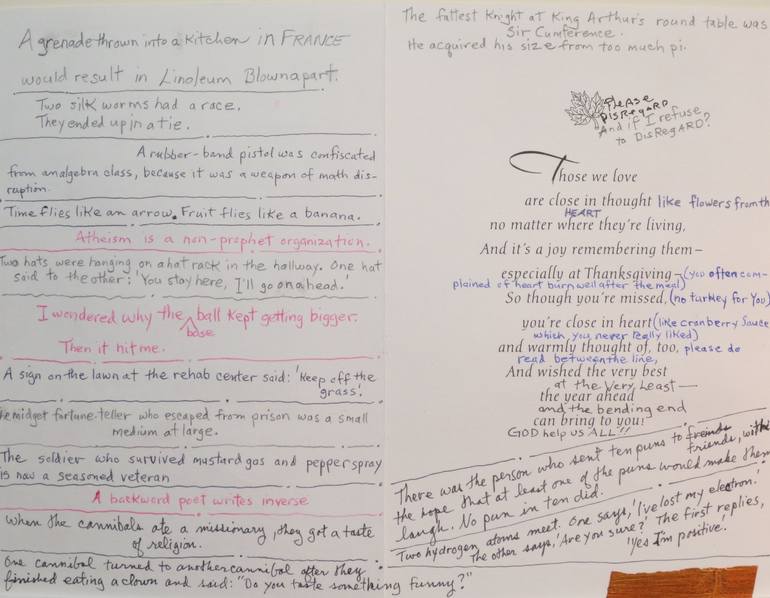 A grenade thrown into a kitchen in FRANCE
would result in Linoleum Blownapart.
Two silk worms had a race.
They ended up in a tie.
A rubber-band pistol was confiscated
from an algebra class, because it was a weapon of math dis-
ruption.
Time flies like an arrow. Fruit flies like a banana.
Atheism is a non-prophet organization.
Two hats were hanging on a hat rack in the hallway. One hat
said to the other: 'You stay here, I'll go on a head.'
I wondered why the ball kept getting bigger.
base
Then it hit me.
A sign on the lawn at the rehab center said: 'Keep off the
grass.'
midget fortune-teller who escaped from prison was a small
medium at large.
The soldier who survived mustard gas and pepper spray
is now a seasoned veteran
A backword poet writes inverse
When the cannibals ate a missionary, they got a taste
of religion.
One cannibal turned to another cannibal after they
finished eating a clown and said: "Do you taste something funny?"
The fattest Knight at King Arthur's round table was
Sir Cumference.
He acquired his size from too much pi.
Please
DisRegard
And if I refuse
to DisRegard?
Those we love
are close in thought like flowers from th
HEART
no matter where they're living,
And it's a joy remembering them—
especially at Thanksgiving— (you often com-
plained of heart burn well after the meal)
So though you're missed, (no turkey for You)
you're close in heart (like cranberry Sauce
which you never really liked)
and warmly thought of, too, please do
read between the line,
And wished the very best
at the Very Least—
the year ahead
and the bending end
can bring to you!
GOD help us ALL!!!
There was the person who sent ten puns to freinds
friends, with
the hope that at least one of the puns would make them
laugh. No pun in ten did.
Two hydrogen atoms meet. One says, 'I've lost my electron.'
The other says, 'Are you sure?' The first replies,
'Yes I'm positive.'